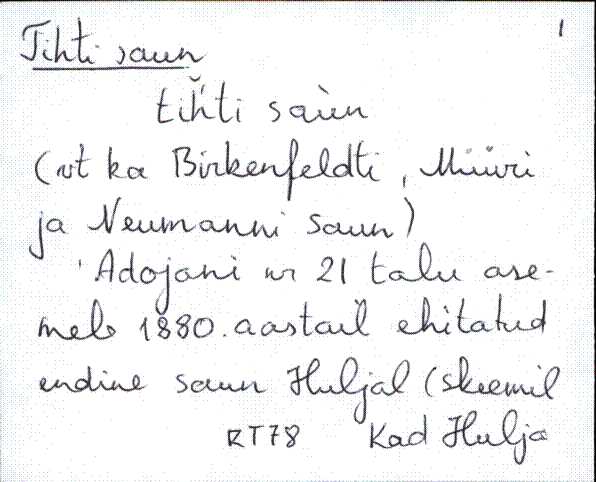 1
Tihti saun
tih̆́ti saùn
(vt ka Birkenfeldti, Müüri
ja Neumanni saun)
'Adojani nr 21 talu ase-
mele 1880. aastail ehitatud
endine saun Huljal (skeemil
RT78 Kad Hulja